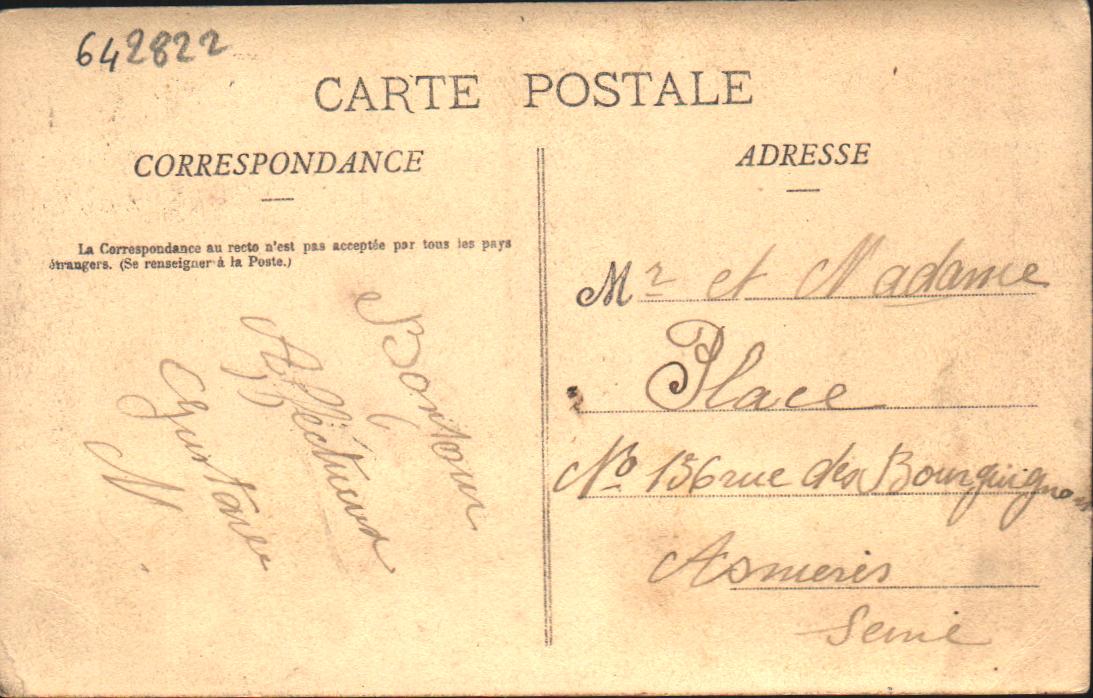 642822
CARTE POSTALE
CORRESPONDANCE
La Correspondance au recto n'est pas acceptée par tous les pays
étrangers. (Se renseigner à la Poste.)
Bonjour
Affectueux
Gustave
M
ADRESSE
Mr et Madame
Place
No 156 rue des Bourguignons
Asnieres
Seine